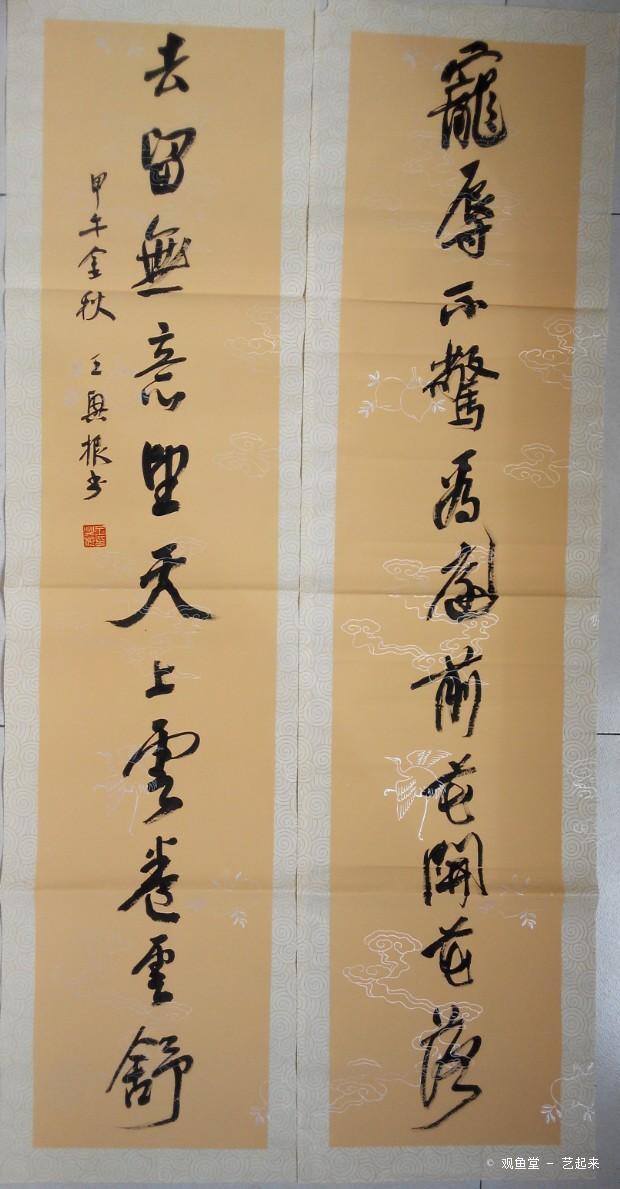 寵辱不驚看庭前花開花落
去留無意望天上雲卷雲舒
甲午金秋 王興根书
© 观鱼堂 – 艺起来